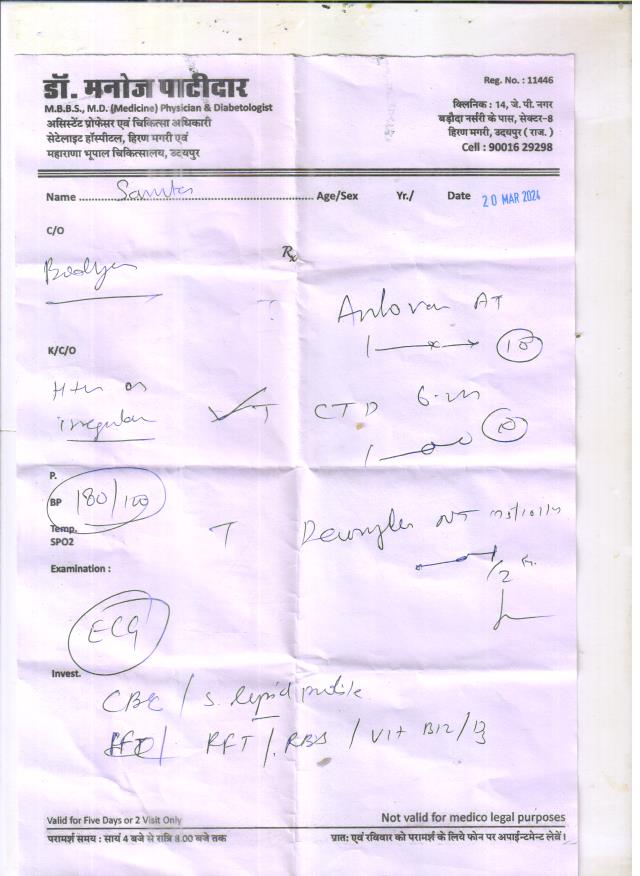 डॉ. मनोज पाटीदार
M.B.B.S., M.D. (Medicine) Physician & Diabetologist
असिस्टेंट प्रोफेसर एवं चिकित्सा अधिकारी
सेटेलाइट हॉस्पीटल, हिरण मगरी एवं
महाराणा भूपाल चिकित्सालय, उदयपुर
Reg. No. : 11446
क्लिनिक : 14, जे. पी. नगर
बड़ौदा नर्सरी के पास, सेक्टर-8
हिरण मगरी, उदयपुर ( राज. )
Cell : 90016 29298
Name Age/Sex Yr./ Date 20 MAR 2024
C/O
Rx
AT
K/C/O
Htn on
irregular
T CTD
10
P.
BP 180/100
Temp.
SPO2
T
Examination :
ECG
Invest.
CBC / S. lipid profile
RFT / RBS / Vit B12 / D3
Valid for Five Days or 2 Visit Only
Not valid for medico legal purposes
परामर्श समय : सायं 4 बजे से रात्रि 8.00 बजे तक
प्रात: एवं रविवार को परामर्श के लिये फोन पर अपाईन्टमेन्ट लेवें।